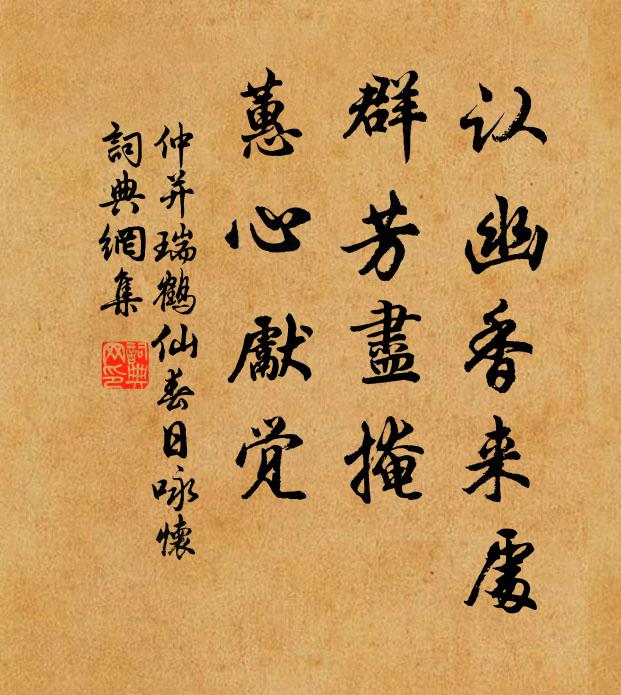 认幽香来處
群芳盡掩
蕙心獻觉
仲并瑞鶴仙春日咏懷
詞典網集
詞典
网印